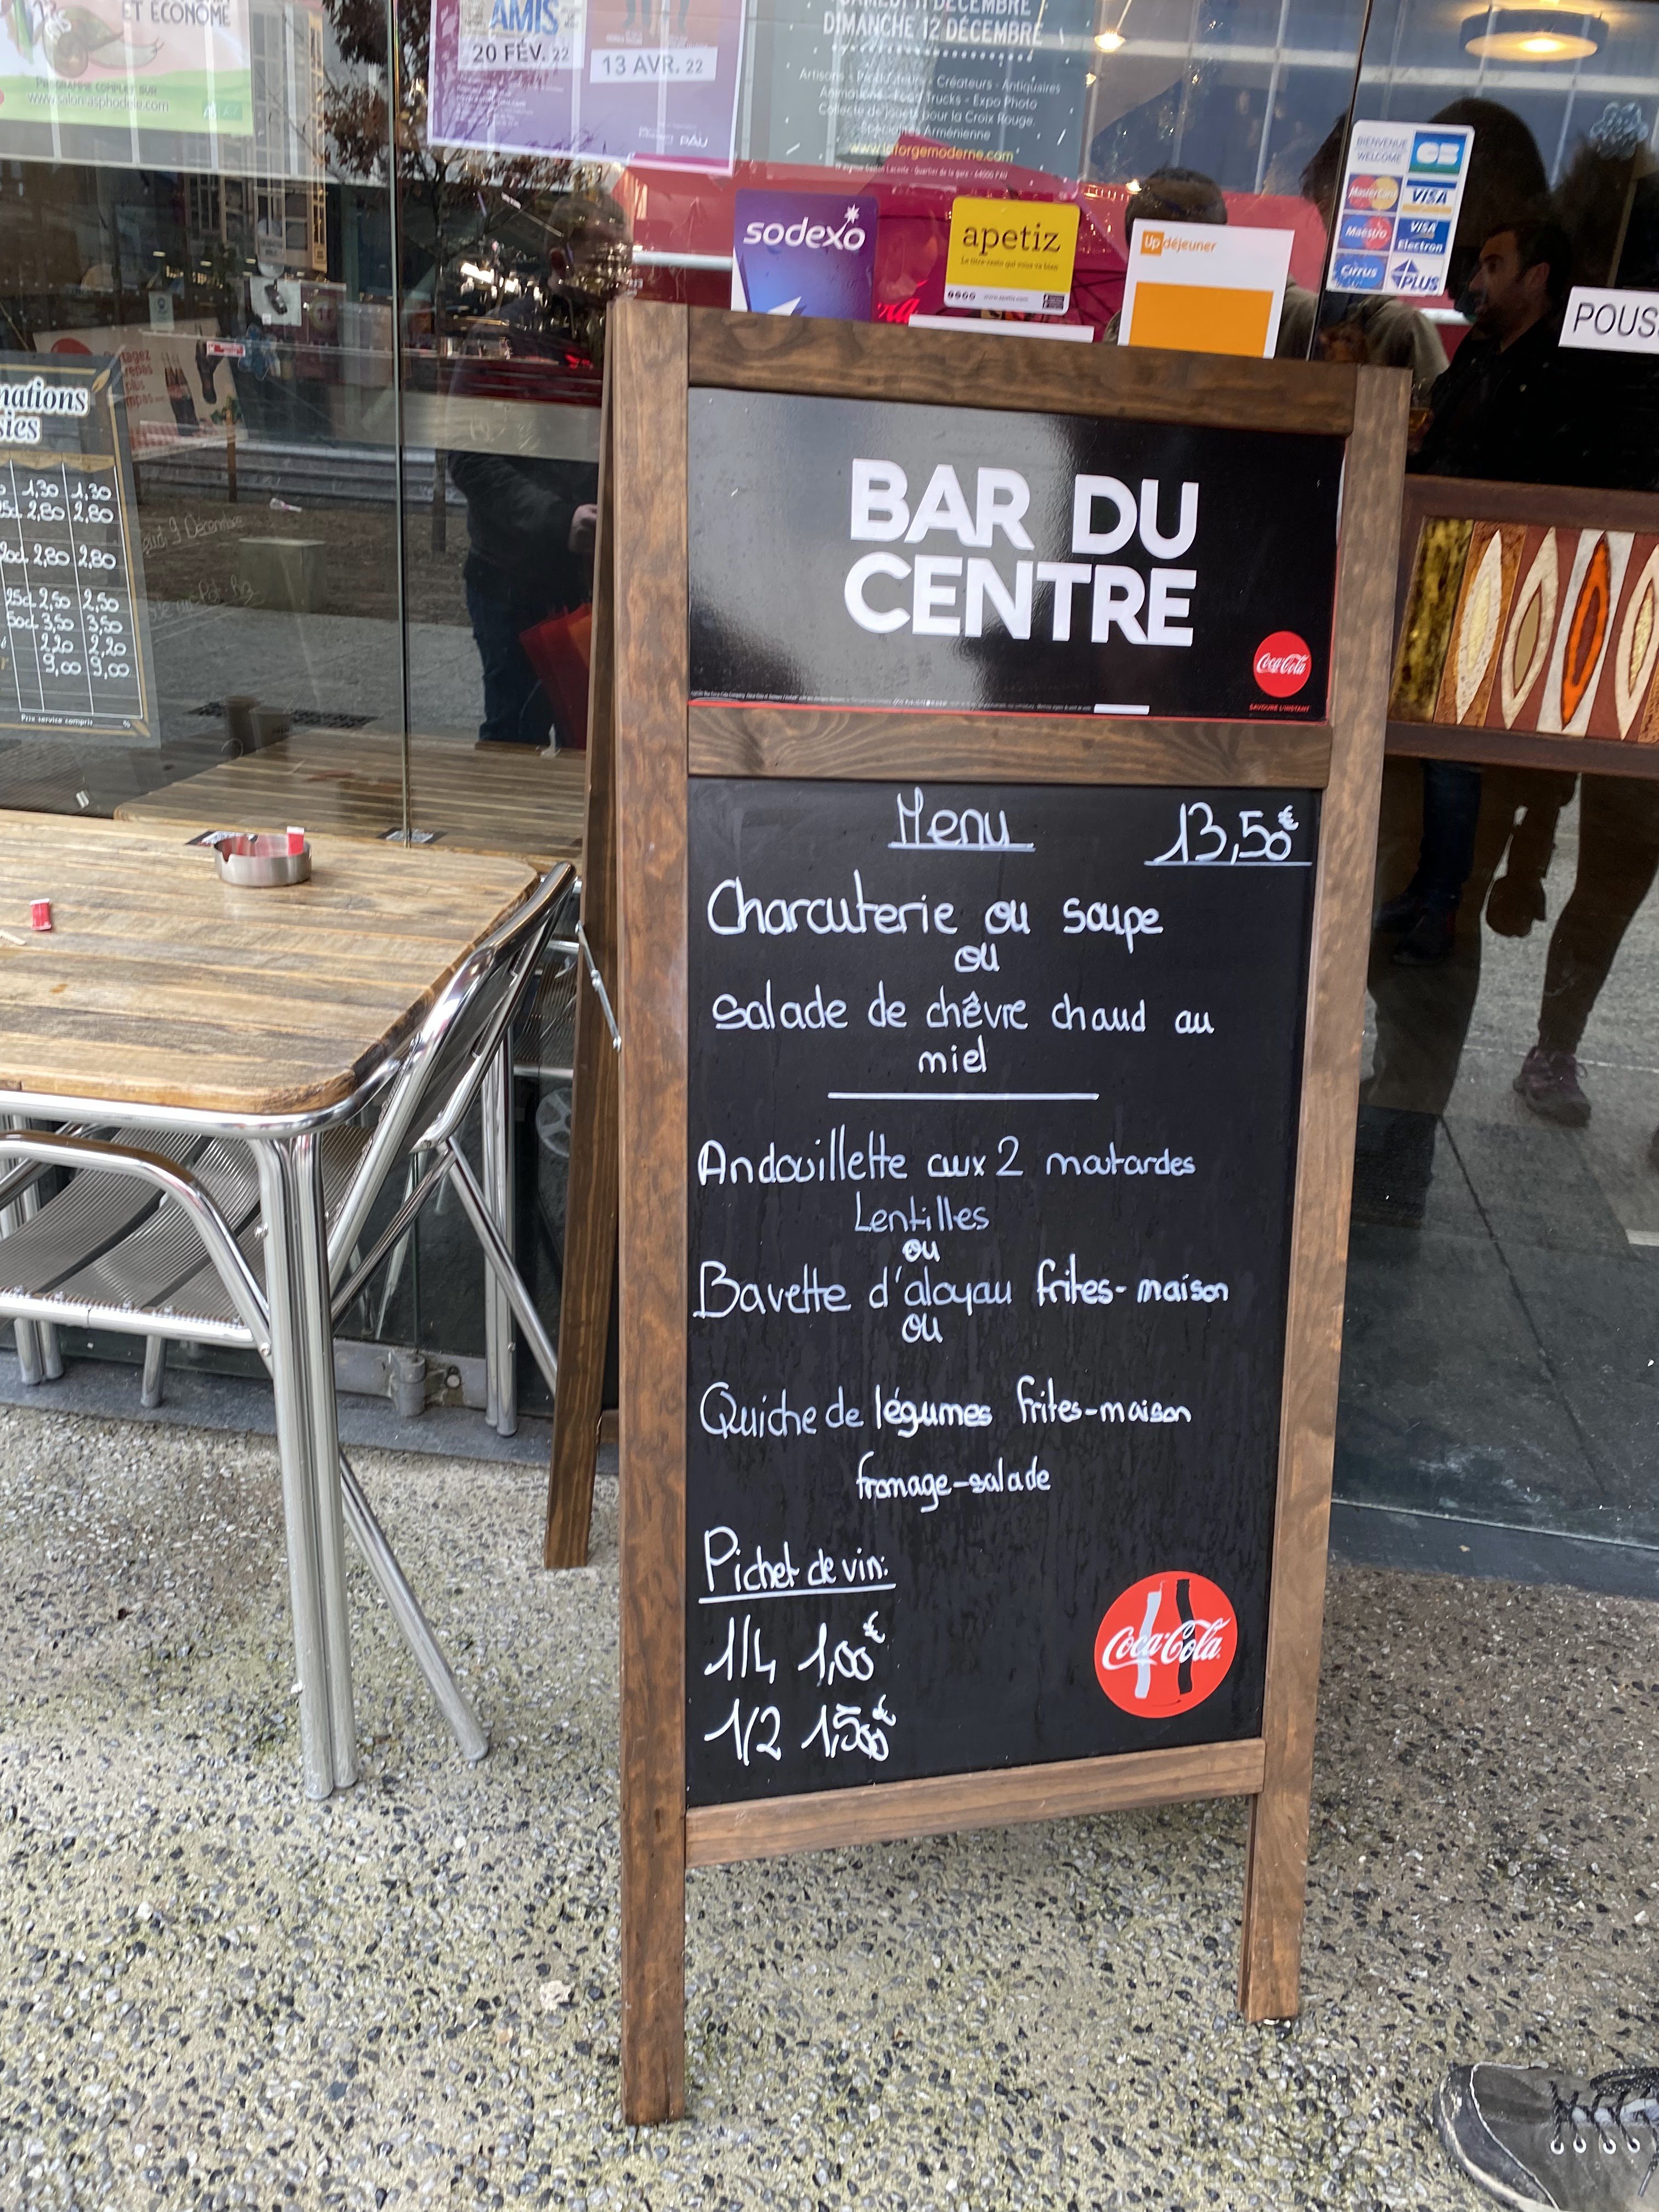 ET ÉCONOME
PROGRAMME COMPLET SUR
www.saloniasphodele.com
AMIS
20 FÉV. 22
13 AVR. 22
PAU
SAMEDI 11 DÉCEMBRE
DIMANCHE 12 DÉCEMBRE
Artisans - Producteurs - Créateurs - Antiquaires
Food Trucks - Expo Photo
Collecte de jouets pour la Croix Rouge
Spécialité Arménienne
www.laforgemoderne.com
BIENVENUE
WELCOME
CB
MasterCard
VISA
Maestro
VISA
Electron
Cirrus
PLUS
sodexo
apetiz
Le titre-resto qui vous va bien
www.apetiz.com
Up déjeuner
POUS
nations
sies
1,30 1,30
25cl 2,80 2,80
20cl 2,80 2,80
25cl 2,50 2,50
50cl 3,50 3,50
2,20 2,20
9,00 9,00
Prix service compris %
BAR DU
CENTRE
Coca-Cola
SAVOURE L'INSTANT
Menu 13,50€
Charcuterie ou soupe
ou
Salade de chêvre chaud au
miel
Andouillette aux 2 moutardes
Lentilles
ou
Bavette d'aloyau frites-maison
ou
Quiche de légumes frites-maison
fromage-salade
Pichet de vin:
1/4 1,00€
1/2 1,50€
Coca-Cola